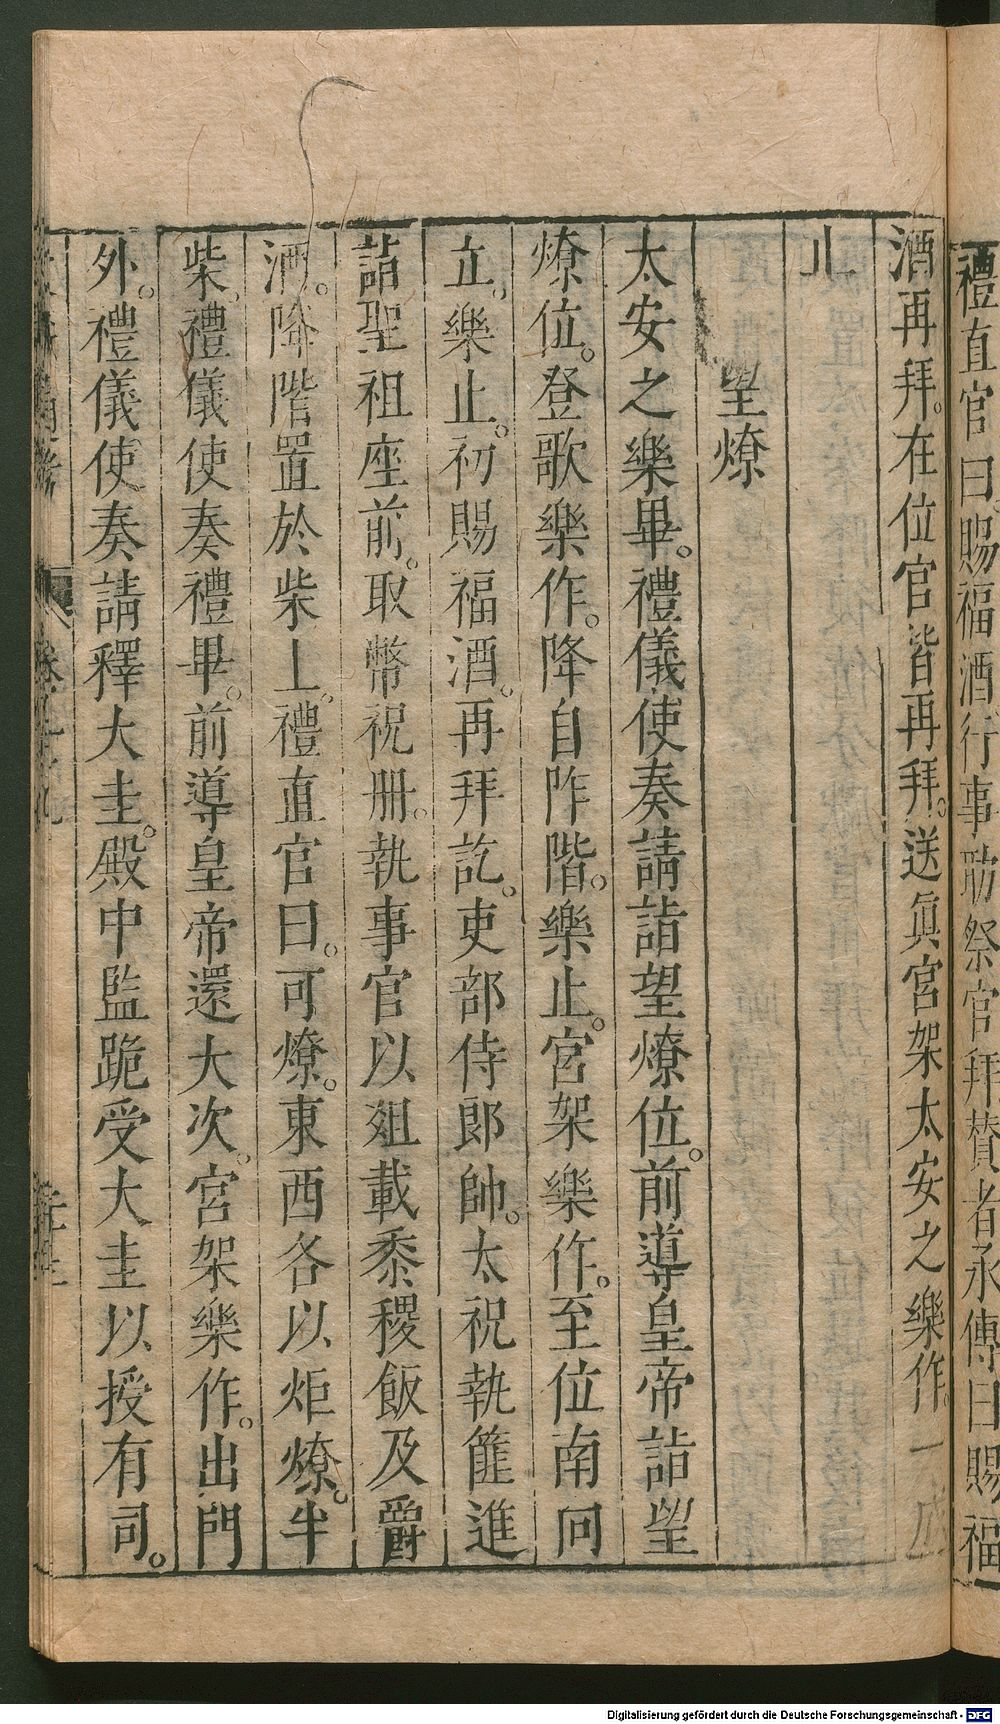 禮直官曰賜福酒行事助祭官拜贊者承傳曰賜福
酒再拜。在位官皆再拜。送眞宮架太安之樂作。一成
止
望燎
太安之樂畢。禮儀使奏請詣望燎位。前導皇帝詣望
燎位。登歌樂作。降自阼階。樂止。宮架樂作。至位南向
立。樂止。初賜福酒。再拜訖。吏部侍郎帥。太祝執篚進
詣聖祖座前。取幣祝册。執事官以俎載黍稷飯及爵
酒。降階置於柴上。禮直官曰。可燎。東西各以炬燎。半
柴。禮儀使奏禮畢。前導皇帝還大次。宮架樂作。出門
外。禮儀使奏請釋大圭。殿中監跪受大圭以授有司。
Digitalisierung gefördert durch die Deutsche Forschungsgemeinschaft - DFG